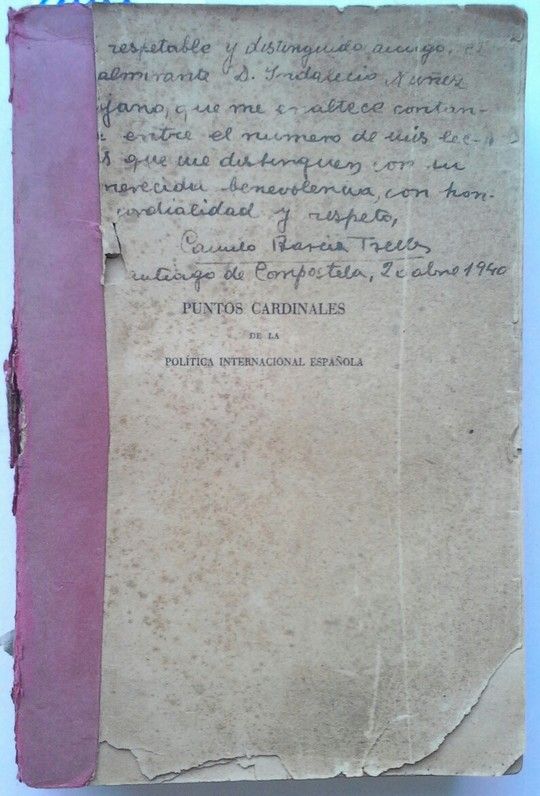 respetable y distinguido amigo, el
almirante D. Indalecio Nuñez
que me enaltece contan-
entre el numero de mis lec-
s que me distinguen con su
merecida benevolencia, con hon-
cordialidad y respeto,
Camilo Barcia Trelles
ntiago de Compostela, 2 abril 1940
PUNTOS CARDINALES
DE LA
POLÍTICA INTERNACIONAL ESPAÑOLA